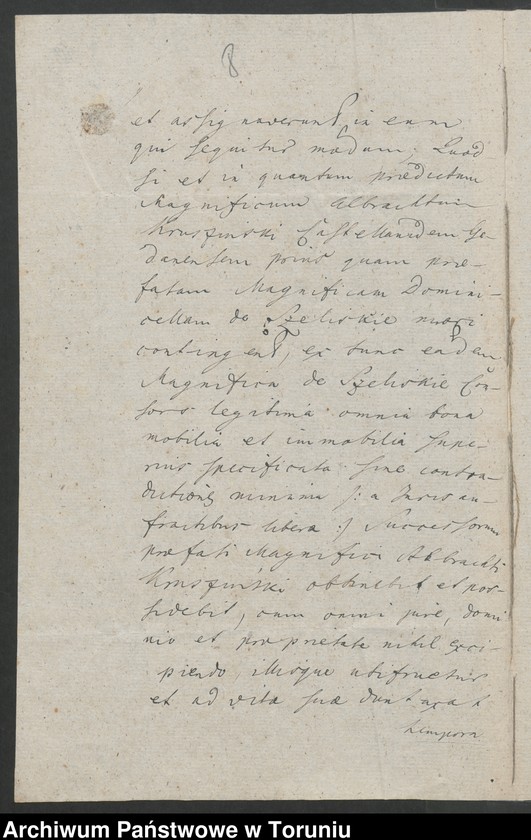 8
et assignaverunt, in eum
qui sequitur modum: Quod
si et in quantum prædictum
Magnificum Albrachtum
Kruszinski Castellanidem Ge-
danensem prius quam præ-
fatam Magnificam Domini-
cellam de Szeliskie mori
contingent, ex tunc eadem
Magnifica de Szeliskie Con-
sors legitima omnia bona
mobilia et immobilia supe-
rius specificata sine contra-
dictione minima /: a Juris an-
fractibus libera :/ Successorum
præfati Magnifici Albrachti
Kruszinski obtinebit et pos-
sidebit, cum omni jure, domi
nio et proprietate nihil exci-
piendo, illisque utifructur
et ad vitæ suæ duntaxat
tempora
Archiwum Państwowe w Toruniu